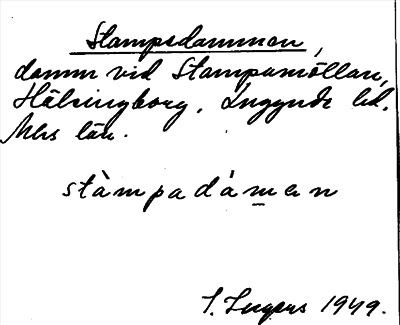 Stampadammen,
damm vid Stampamöllan,
Hälsingborg. Luggude hd.
Mhs län.
stàmpadàm̲an
S. Ingers 1949.